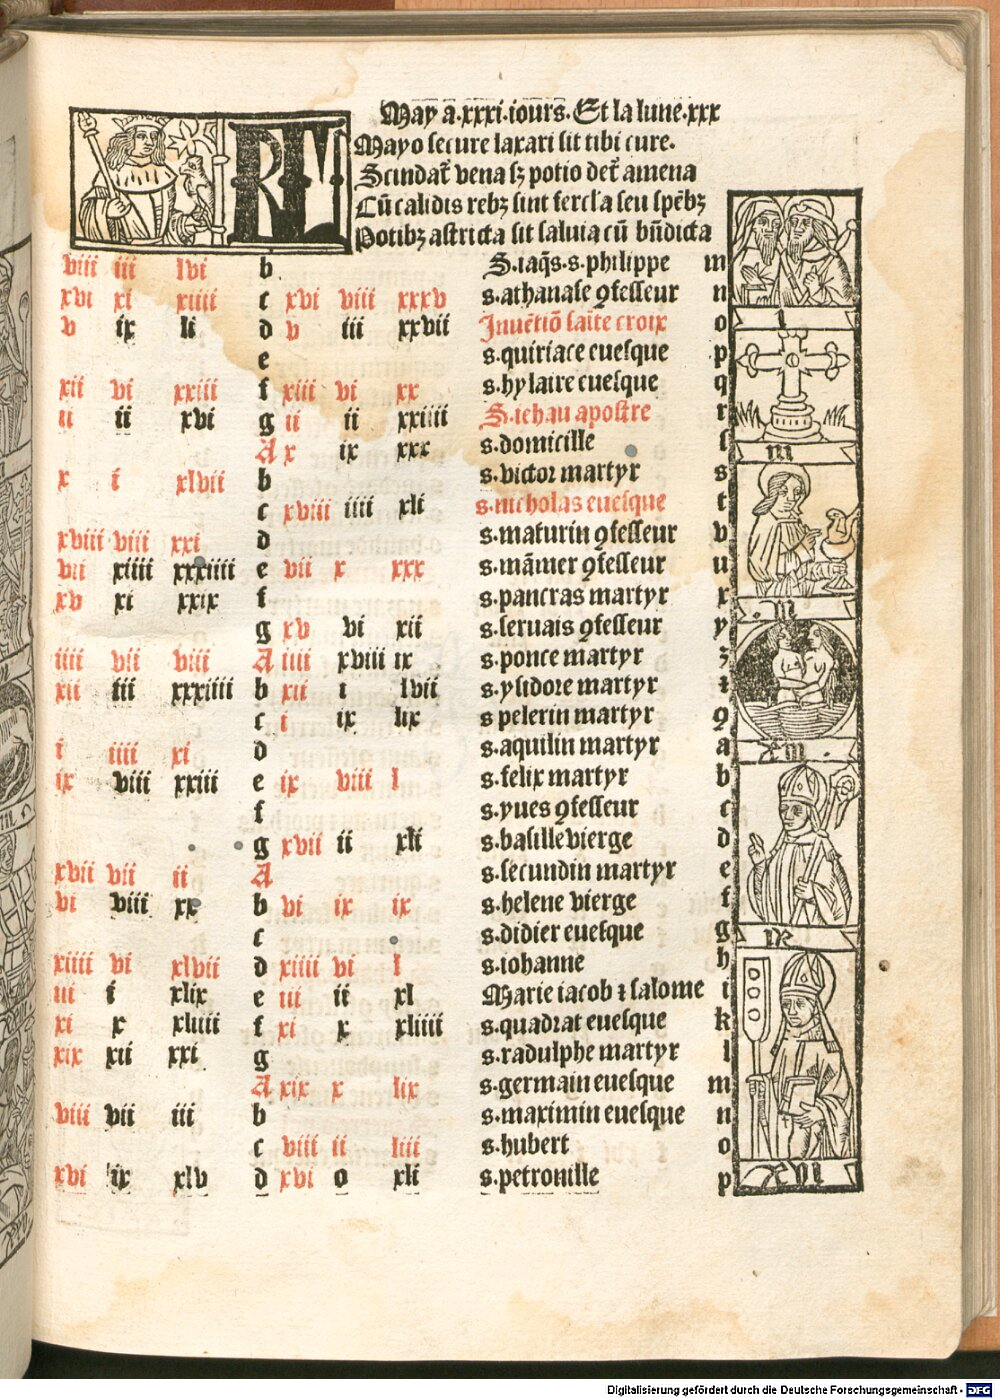 May a.xxxi.iours. Et la lune.xxx
Mayo secure laxari sit tibi cure.
Scindat̃ vena sꝫ potio det̃ amena
Cũ calidis rebꝫ sint fercl'a seu spẽbꝫ
Potibꝫ astricta sit saluia cũ bñdicta
KL
viii iii lvi b S.iaq̃s.s.philippe m
xvi xi xiiii c xvi viii xxxv s.athanase ꝯfesseur n
v ix li d v iii xxvii Inuẽtiõ saĩte croix o
e s.quiriace euesque p
xii vi xxiii f xiii vi xx s.hylaire euesque q
ii ii xvi g ii ii xxiiii S.iehan apostre r
A x ix xxx s.domicille ſ
x i xlvii b s.victor martyr s
c xviii iiii xli s.nicholas euesque t
xviii viii xxi d s.maturin ꝯfesseur v
vii xiiii xxxiiii e vii x xxx s.mãmer ꝯfesseur u
xv xi xxix f s.pancras martyr x
g xv vi xii s.seruais ꝯfesseur y
iiii vii viii A iiii xviii ix s.ponce martyr z
xii iii xxxiiii b xii i lvii s.ysidore martyr ꝛ
c i ix lix s pelerin martyr ꝯ
i iiii xi d s.aquilin martyr a
ix viii xxiii e ix viii l s.felix martyr b
f s.yues ꝯfesseur c
g xvii ii xli s.basille vierge d
xvii vii ii A s.secundin martyr e
vi viii xx b vi ix ix s.helene vierge f
c s.didier euesque g
xiiii vi xlvii d xiiii vi l s.iohanne h
iii i xlix e iii ii xl Marie iacob ꝛ salome i
xi x xliiii f xi x xliiii s.quadrat euesque k
xix xii xxi g s.radulphe martyr l
A xix x lix s.germain euesque m
viii vii iii b s.maximin euesque n
c viii ii liii s.hubert o
xvi ix xlv d xvi o xli s.petronille p
I
III
XIX
XVI
Digitalisierung gefördert durch die Deutsche Forschungsgemeinschaft - DFG